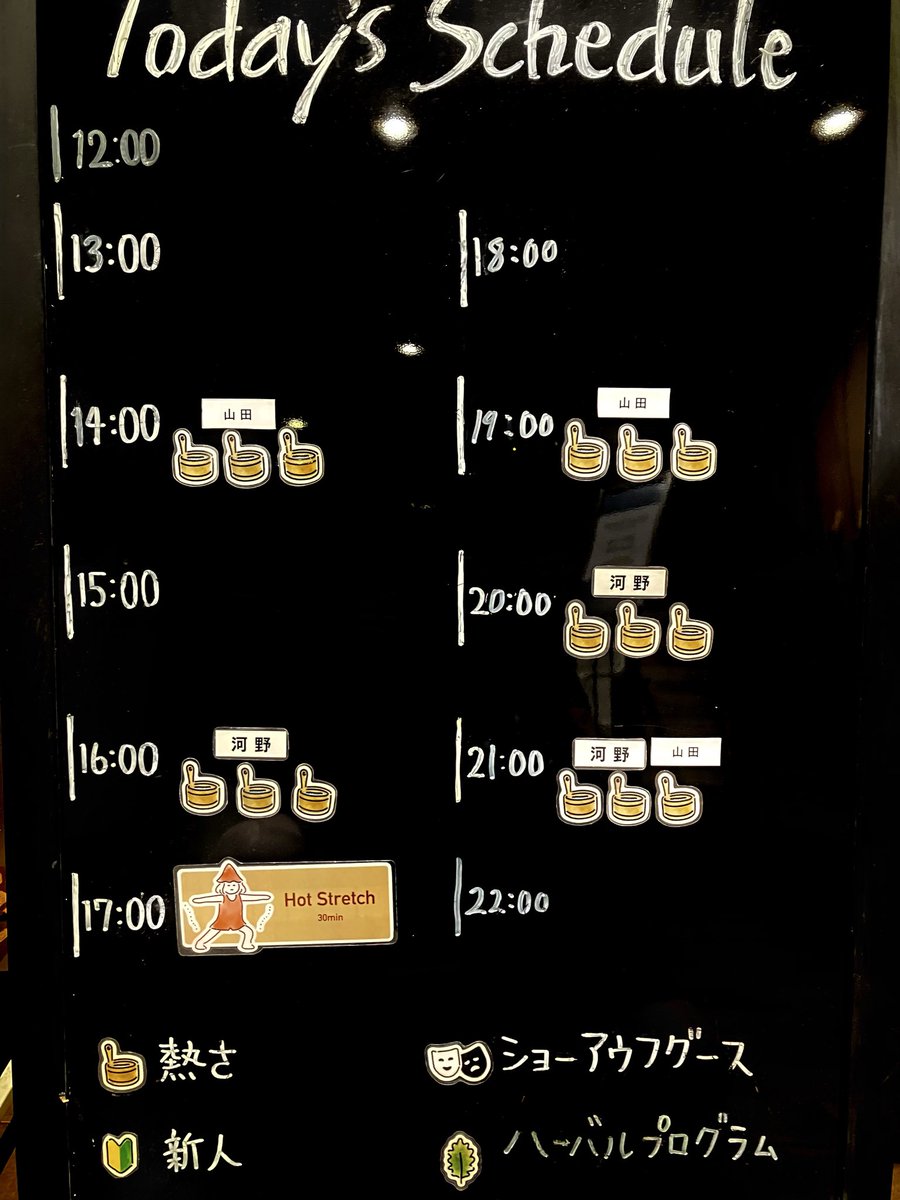 Today's Schedule
12:00
13:00
14:00 山田
15:00
16:00 河野
17:00 Hot Stretch
30min
18:00
19:00 山田
20:00 河野
21:00 河野 山田
22:00
熱さ
新人
ショーアウフグース
ハーバルプログラム